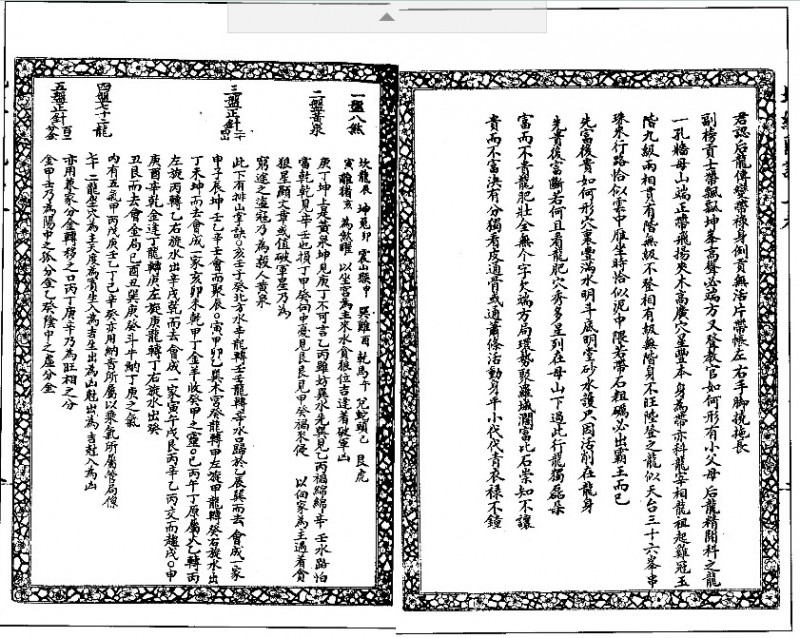 君認后龍傳變帶 身倒貢無活片帶帳左右手脚挽拖長
副榜貢士帶飄飄坤峯高聳必端方又登教官如何形有小父母后龍精 科之龍
一孔牆母山端正帶飛揚夾木高廣穴星豐本身為帶亦科龍宰相龍祖起雞冠玉
階九級兩相貫有階無級不登相有級無階身不旺陸登之龍似天台三十六峯串
珠來行路恰似雲中雁坐時恰似泥中隈若帶石粗礪必出霸王而已
先富後貴如何形穴來豐滿水明斗底明堂砂水護只因活削在龍身
先貴後富斷若何且看龍肥穴秀多呈到在母山下過此行龍獨磊朵
富而不貴龍肥壯全無个字欠端方局環勢聚羅城濶富比石崇知不讓
貴而不富決有分獨看皮過骨或通蕭條活動身半小代代青衣祿不鍾
一盤八煞
坎龍辰 坤兔卯 震山猴申 巽雞酉 乾馬午 兌蛇頭巳 艮虎
寅離猪亥 為煞曜 以坐宮為主來水貪狼位吉逢着破軍凶
二盤黃泉
庚丁坤上是黃泉坤見庚丁不可言乙丙雖妨巽水先巽見乙丙福綿綿辛壬水路怕
當乾乾見辛壬也損丁甲癸向中憂見艮艮見甲癸禍來侵 以向家為主過着貪
狼星顯文章或值破軍星乃為
窮途之 寇乃為殺人黃泉
三盤正針二十四山
此下有排山掌訣 亥壬子癸北方水辛龍轉壬壬龍轉辛水口歸於乙辰巽而去會成一家
申子辰壬乙辛壬會而聚辰 寅甲卯乙巽木宮癸龍轉甲左旋甲龍轉癸右旋水出
丁未坤而去會成一家亥卯未乾甲丁金羊收癸甲之靈 巳丙午丁原屬火乙轉丙
左旋丙轉乙右旋水出辛戌乾而去會成一家寅午戌艮丙辛乙丙交而趨戌 申
庚酉辛乾金逢丁龍轉庚左旋庚龍轉丁右旋水出癸
丑艮而去會金局巳酉丑巽庚癸斗牛納丁庚之氣
四盤七十二龍
內有五氣甲丙戊庚壬乙丁己辛癸亦用納音所屬以乘氣所屬管局像
七十二龍坐穴為主天度為賓生入為吉生出為凶尅出為吉尅入為凶
五盤正針百二分金
亦用兼家分金轉移之 丙丁庚辛乃為旺相之分
金甲壬乃為陽中之孤分金乙癸陰中之虛分金